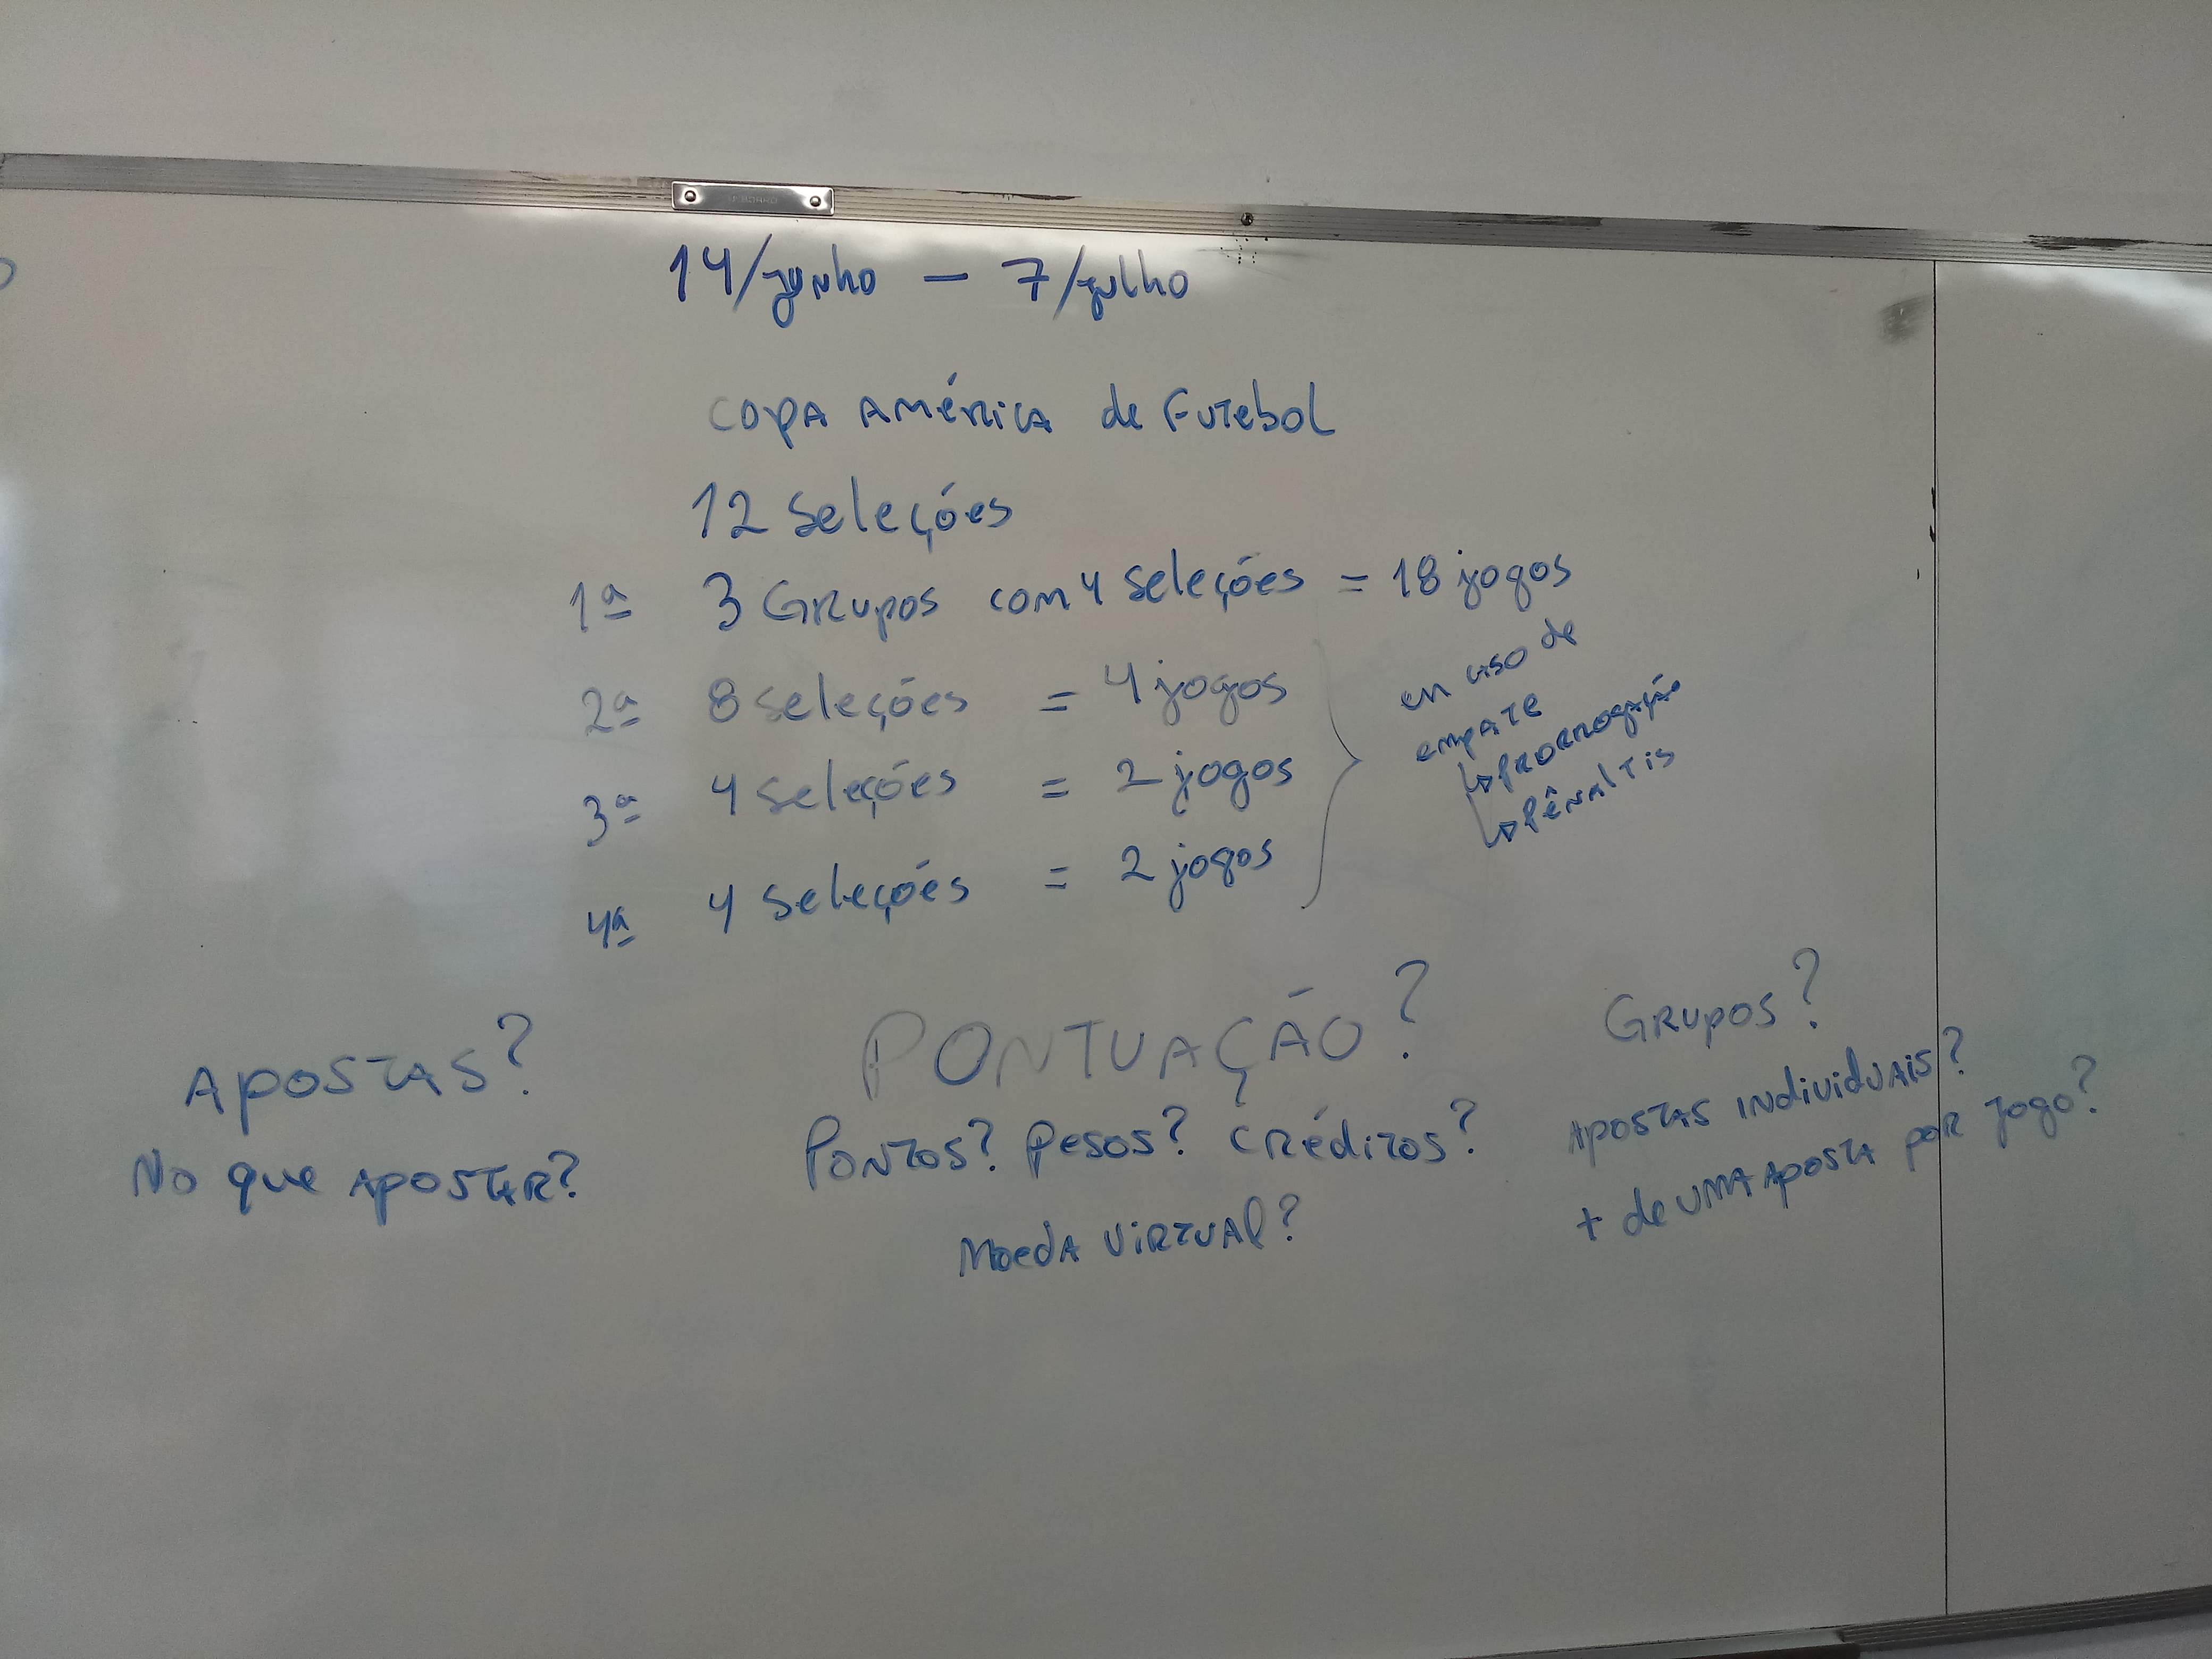 14/junho – 7/julho
COPA AMÉRICA de FUTEBOL
12 Seleções
1ª 3 GRUPOS COM 4 Seleções = 18 jogos
2ª 8 seleções = 4 jogos
3ª 4 seleções = 2 jogos
4ª 4 seleções = 2 jogos
em caso de
empate
↳ PRORROGAÇÃO
↳ PÊNALTIS
APOSTAS?
No que APOSTAR?
PONTUAÇÃO?
PONTOS? Pesos? CRÉDITOS?
MOEDA VIRTUAL?
GRUPOS?
APOSTAS INdividuAis?
+ de UMA APOSTA POR JOGO?